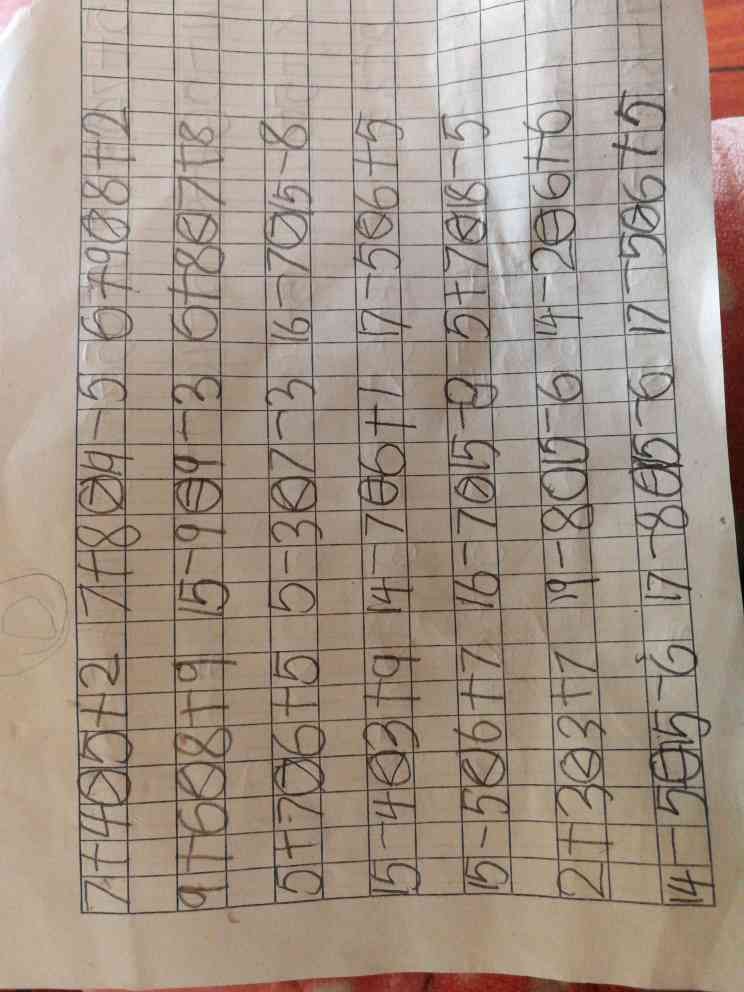 7+4>5+2 7+8>14-5 6+9>8+2
9+6<8+9 15-9=9-3 6+8<7+8
5+7>6+5 5-3<7-3 16-7>15-8
15-4<3+9 14-7=6+1 17-5>6+5
15-5<6+7 16-7>15-8 5+7<18-5
2+3<3+7 19-8○15-6 14-2=6+6
14-5=15-6 17-8=15-6 17-5>6+5